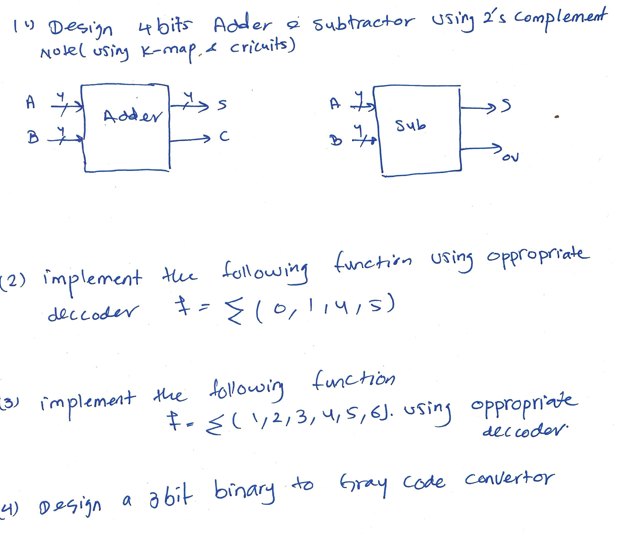 1) Design 4 bits Adder & subtractor using 2's complement
Note( using K-map, & cricuits)
A 4 Adder 4 S
B 4 C
A 4 Sub S
B 4 OV
(2) implement the following function using oppropriate
deccoder f = Σ(0,1,4,5)
(3) implement the followig function
f = Σ(1,2,3,4,5,6). using oppropriate
deccoder.
(4) Design a 3bit binary to Gray code convertor